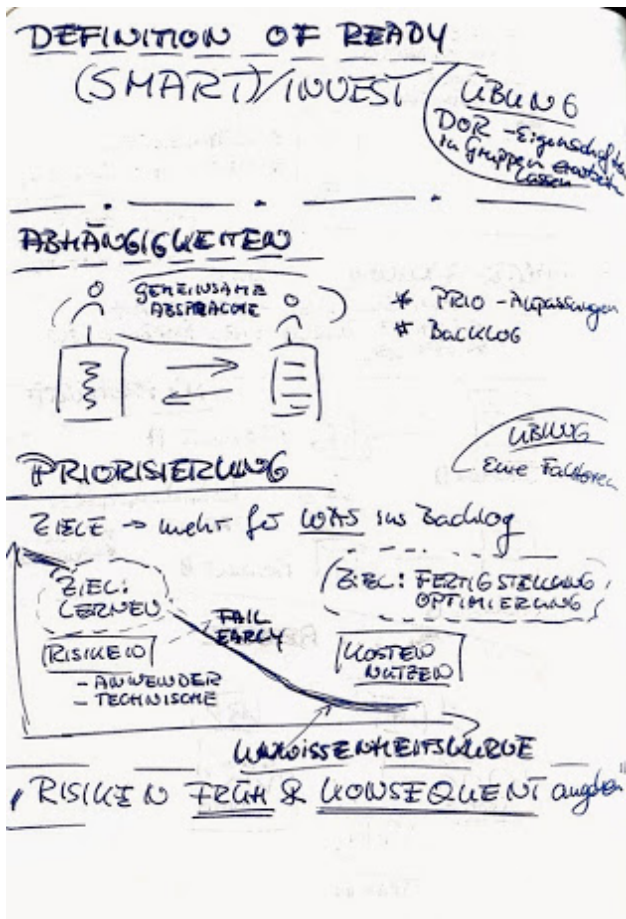 DEFINITION OF READY
(SMART)/INVEST
ÜBUNG
DOR - Eigenschaften
in Gruppen erarbeiten
lassen
ABHÄNGIGKEITEN
GEMEINSAME
ABSPRACHE
* PRIO - Anpassungen
* BACKLOG
ÜBUNG
Eure Faktoren
PRIORISIERUNG
ZIELE → mehr für WAS ins Backlog
ZIEL:
LERNEN
ZIEL: FERTIGSTELLUNG
OPTIMIERUNG
FAIL
EARLY
RISIKEN
- ANWENDER
- TECHNISCHE
KOSTEN
NUTZEN
UNWISSENHEITSKURVE
"RISIKEN FRÜH & KONSEQUENT angehen"